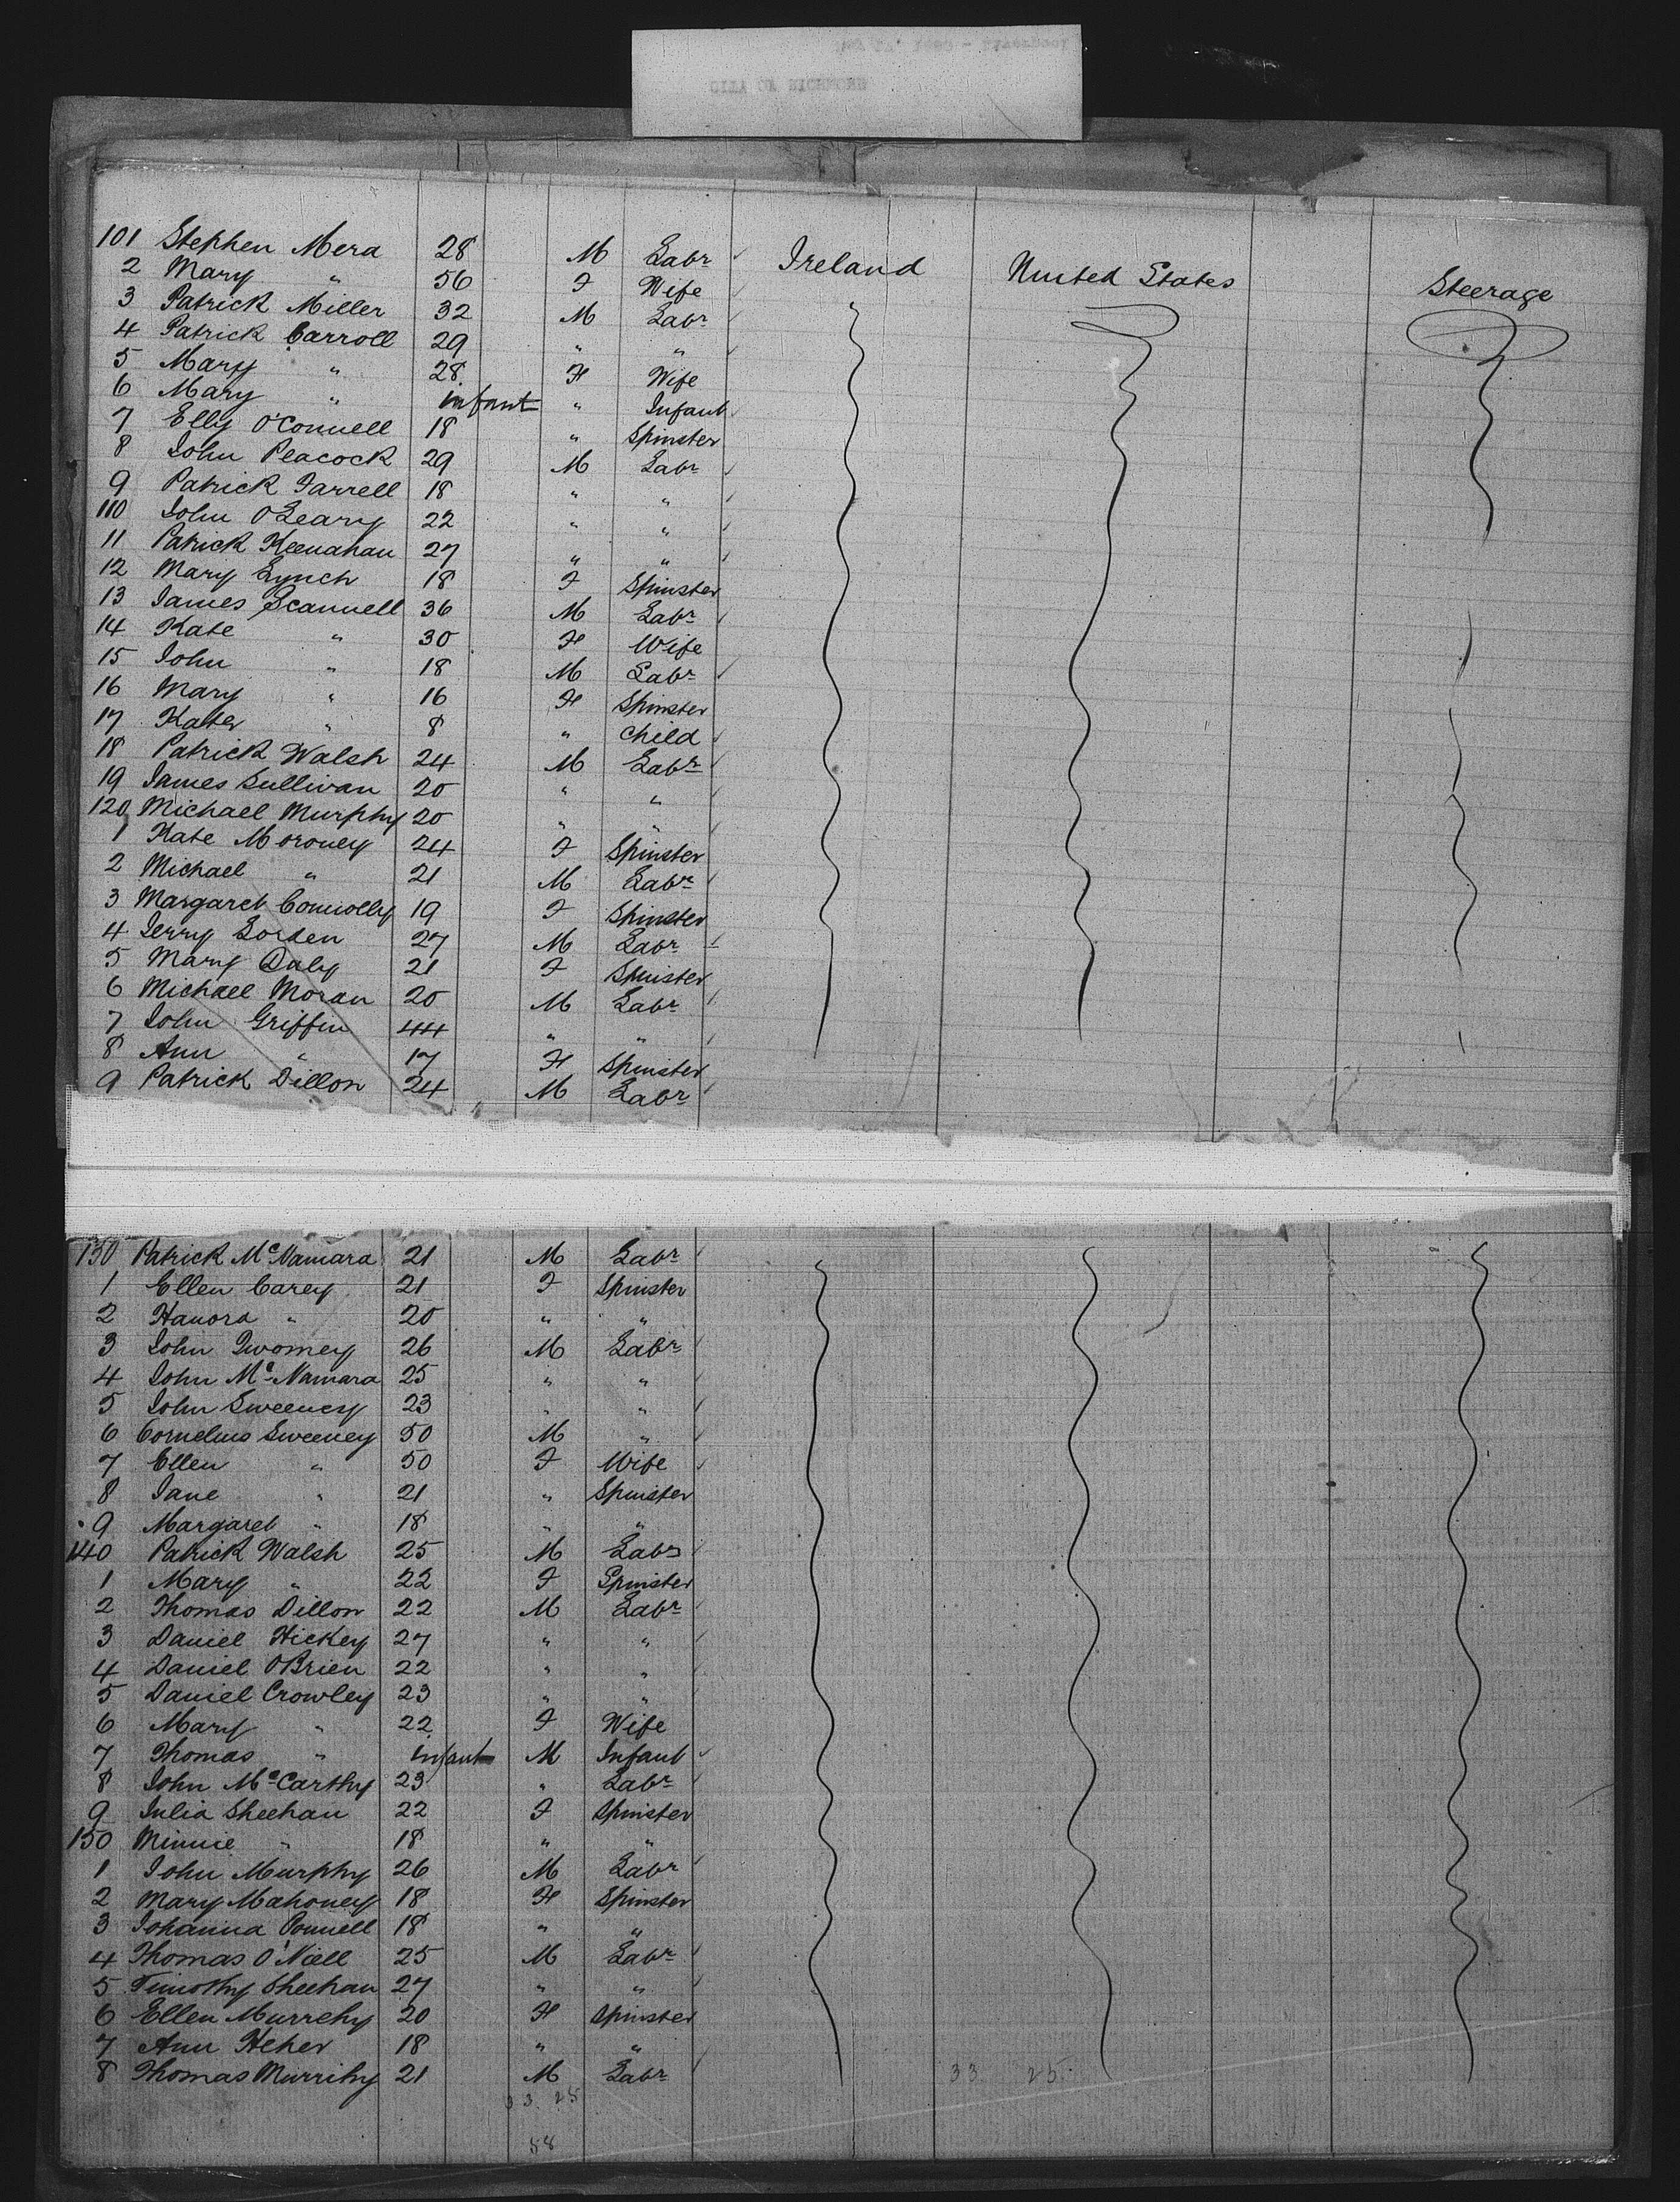 101 Stephen Mera 28 M Labr Ireland United States Steerage
2 Mary " 56 F Wife
3 Patrick Miller 32 M Labr
4 Patrick Carroll 29 " "
5 Mary " 28 F Wife
6 Mary " infant " Infant
7 Elly O'Connell 18 " Spinster
8 John Peacock 29 M Labr
9 Patrick Farrell 18 " "
110 John O'Leary 22 " "
11 Patrick Keenahan 27 " "
12 Mary Lynch 18 F Spinster
13 James Scannell 36 M Labr
14 Kate " 30 F Wife
15 John " 18 M Labr
16 Mary " 16 F Spinster
17 Kate " 8 " Child
18 Patrick Walsh 24 M Labr
19 James Sullivan 20 " "
120 Michael Murphy 20 " "
1 Kate Moroney 24 F Spinster
2 Michael " 21 M Labr
3 Margaret Connolly 19 F Spinster
4 Jerry Lorden 27 M Labr
5 Mary Daly 21 F Spinster
6 Michael Moran 20 M Labr
7 John Griffin 44 " "
8 Ann " 17 F Spinster
9 Patrick Dillon 24 M Labr
130 Patrick McNamara 21 M Labr
1 Ellen Carey 21 F Spinster
2 Hanora " 20 " "
3 John Twomey 26 M Labr
4 John McNamara 25 " "
5 John Sweeney 23 " "
6 Cornelius Sweeney 50 M "
7 Ellen " 50 F Wife
8 Jane " 21 " Spinster
9 Margaret " 18 " "
140 Patrick Walsh 25 M Labr
1 Mary " 22 F Spinster
2 Thomas Dillon 22 M Labr
3 Daniel Hickey 27 " "
4 Daniel O'Brien 22 " "
5 Daniel Crowley 23 " "
6 Mary " 22 F Wife
7 Thomas " infant M Infant
8 John McCarthy 23 " Labr
9 Julia Sheehan 22 F Spinster
150 Minnie " 18 " "
1 John Murphy 26 M Labr
2 Mary Mahoney 18 F Spinster
3 Johanna Connell 18 " "
4 Thomas O'Niell 25 M Labr
5 Timothy Sheehan 27 " "
6 Ellen Murrehy 20 F Spinster
7 Ann Heher 18 " "
8 Thomas Murrihy 21 M Labr
33 25
33 25
58